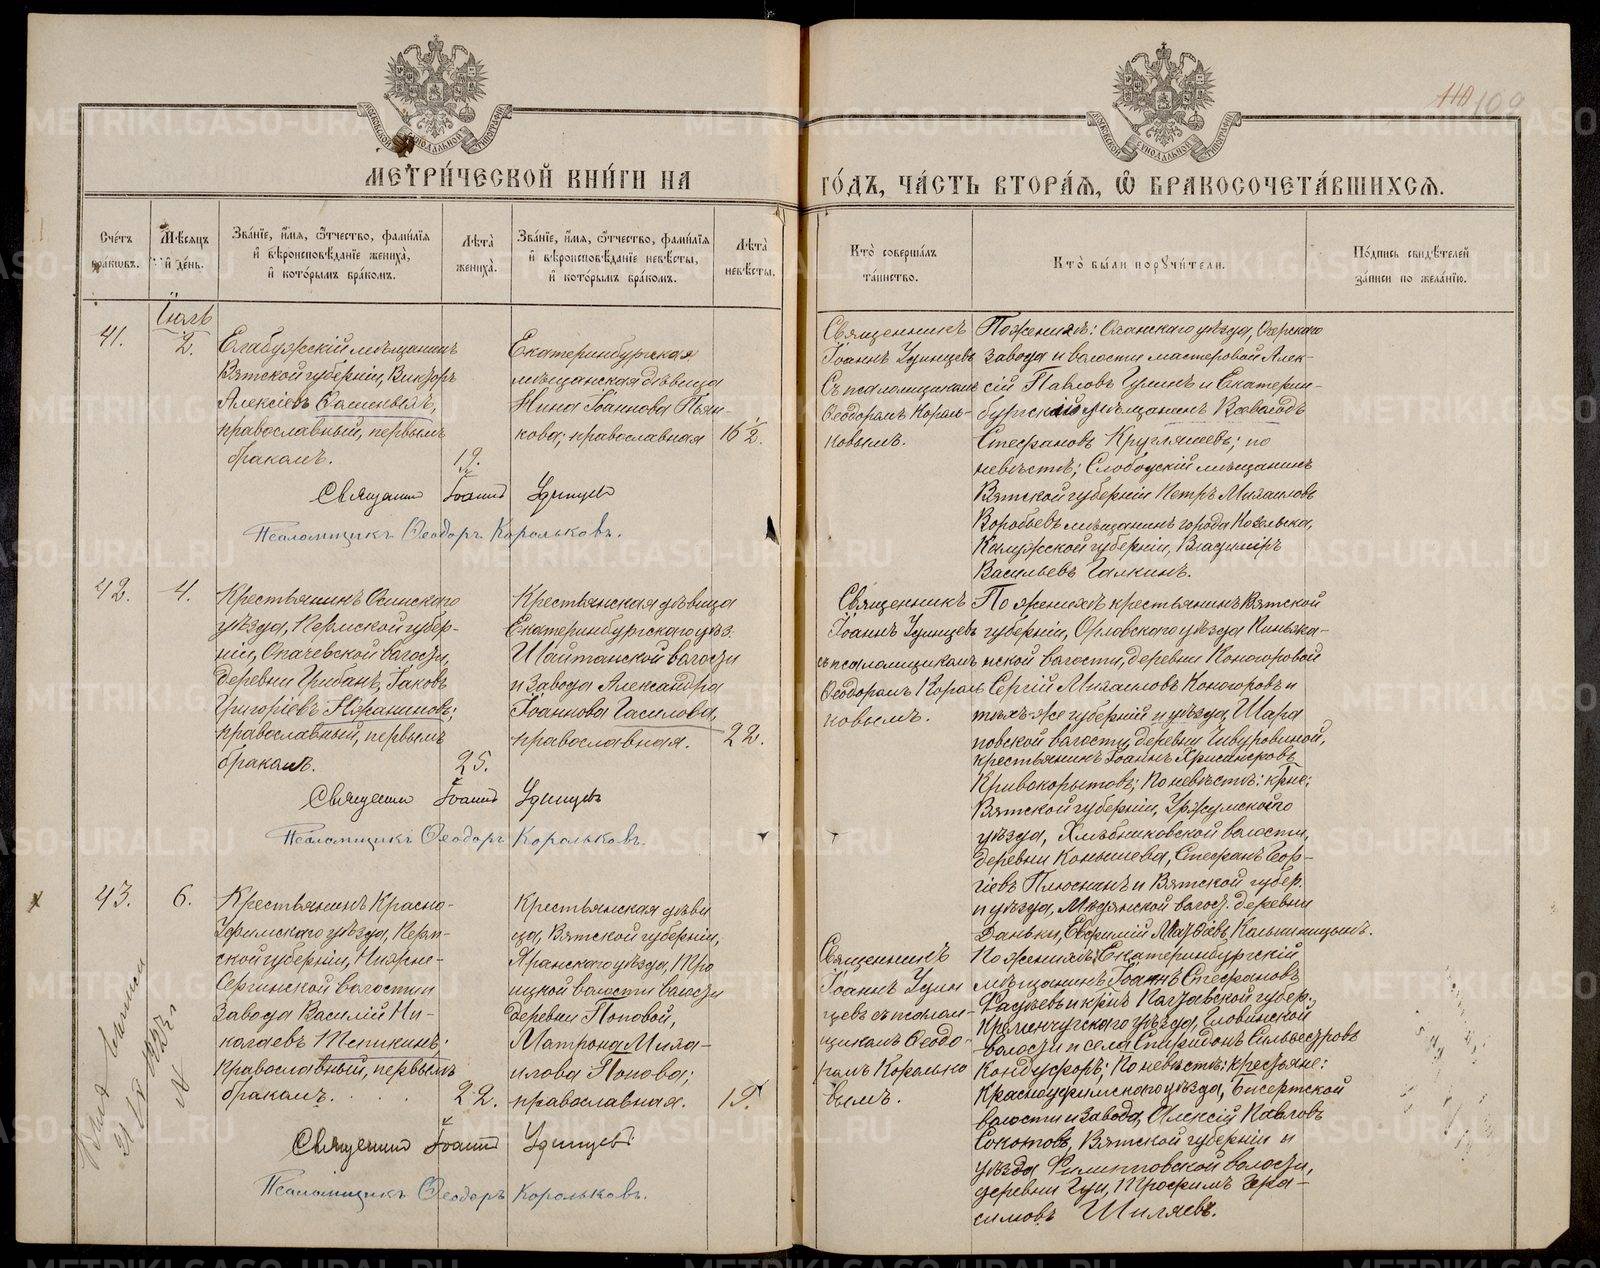 МЕТРИ́ЧЕСКОЙ КНИ́ГИ НА ГО́ДЪ, ЧА́СТЬ ВТОРА́Я, Ѽ БРАКОСОЧЕТА́ВШИХСЯ.
109
Сче́тъ бра́ковъ.
Мѣ́сяцъ и́ де́нь.
Зва́нїе, и́мя, ѻ́тчество, фамѝлїя и́ вѣроисповѣ́данїе жениха̀, и́ кото́рымъ бра́комъ.
Лѣ́та̀ жениха̀.
Зва́нїе, и́мя, ѻ́тчество, фамѝлїя и́ вѣроисповѣ́данїе невѣ́сты, и́ кото́рымъ бра́комъ.
Лѣ́та̀ невѣ́сты.
Кто̀ соверша́лъ та́инство.
Кто̀ бы́ли порꙋчи́тели.
По́дпись свидѣ́телей за́писи по жела́нїю.
41.
2.
Елабужскій мѣщанинъ
Вятской губерніи, Викторъ
Алексіевъ
православный, первымъ
бракомъ.
19.
Екатеринбургская
мѣщанская дѣвица
Нина Іоаннова Пьян-
кова; православная
16 1/2.
Священникъ
Іоаннъ Удинцевъ
съ псаломщикомъ
Ѳеодоромъ Король-
ковымъ.
По женихѣ: Осанскаго уѣзда, Очерскаго
завода и волости мастеровой Алек-
сій Павловъ Гулинъ и Екатерин-
бургскій мѣщанинъ Всеволодъ
Стефановъ Кругляшевъ; по
невѣстѣ; Слободскій мѣщанинъ
Вятской губерніи Петръ Михаиловъ
Воробьевъ мѣщанинъ города Козельска,
Калужской губерніи, Владиміръ
Васильевъ Галкинъ.
Священникъ Іоаннъ Удинцевъ
Псаломщикъ Ѳеодоръ Корольковъ.
42.
4.
Крестьянинъ Осинскаго
уѣзда, Пермской губер-
ніи, Опачевской волости,
деревни Грибанъ, Іаковъ
Григоріевъ
православный, первымъ
бракомъ.
25.
Крестьянская дѣвица
Екатеринбургскаго уѣз.
Шайтанской волости
и завода Александра
Іоаннова Гасилова,
православная.
22.
Священникъ
Іоаннъ Удинцевъ
съ псаломщикомъ
Ѳеодоромъ Король
ковымъ.
По женихѣ крестьянинъ Вятской
губерніи, Орловскаго уѣзда
волости, деревни Коногоровой
Сергій Михаиловъ Коногоровъ и
тѣхъ-же губерніи и уѣзда, Шара
повской волости, деревни
крестьянинъ Іоаннъ Хрисанфовъ
Кривокорытовъ; По невѣстѣ: крне:
Вятской губерніи, Уржумскаго
уѣзда, Хлѣбниковской волости,
деревни Конышева, Стефанъ Геор-
гіевъ Плюснинъ и Вятской губер.
и уѣзда, Медянской волост. деревни
Даньки, Евфимій Матѳіевъ
Священникъ Іоаннъ Удинцевъ
Псаломщикъ Ѳеодоръ Корольковъ.
43.
6.
Крестьянинъ Красно-
уфимскаго уѣзда, Перм-
ской губерніи, Нижне-
Сергинской волости и
завода Василій Ни-
колаевъ Тепикинъ;
православный, первымъ
бракомъ.
22.
Крестьянская дѣви
ца, Вятской губерніи,
Яранскаго уѣзда, Тро
ицкой волости волости
деревни Поповой,
Матрона Миха-
илова Попова;
православная.
19.
Священникъ
Іоаннъ Удин
цевъ съ псалом-
щикомъ Ѳеодо-
ромъ Королько
вымъ.
По женихѣ: Екатеринбургскій
мѣщанинъ Іоаннъ Стефановъ
Фадѣевъ и крнъ Полтавской губер.,
Кременчугскаго уѣзда,
волости и села Спиридонъ Сильвестровъ
По невѣстѣ: крестьяне:
Красноуфимскаго уѣзда, Бисертской
волости и завода, Алексій Павловъ
Вятской губерніи и
уѣзда Филипповской волости,
деревни Трофимъ Гера-
симовъ Шиляевъ.
Священникъ Іоаннъ Удинцевъ
Псаломщикъ Ѳеодоръ Корольковъ.
METRIKI.GASO-URAL.RU